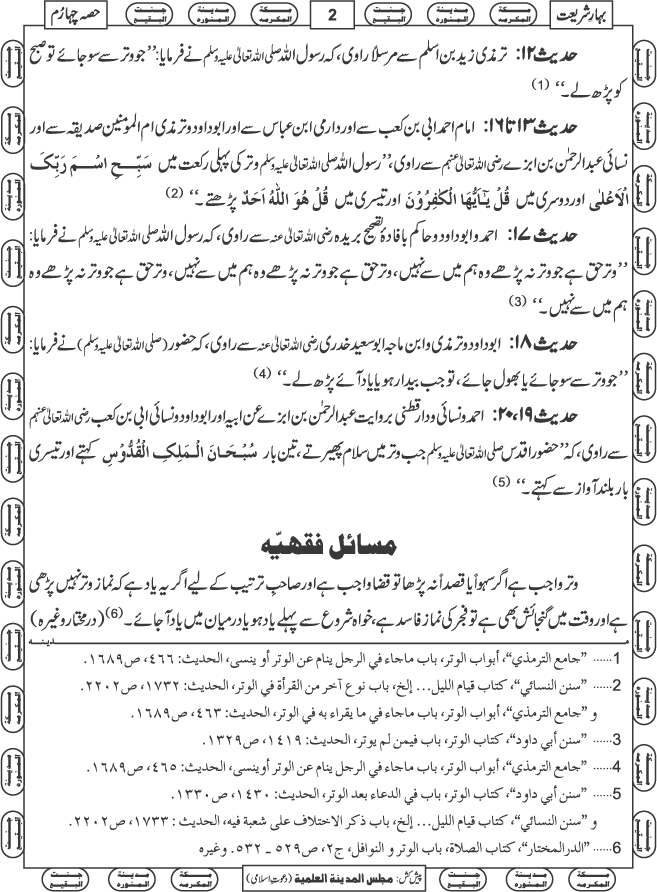 بہارِ شریعت
2
حصہ چہارم
حدیث ۱۲: ترمذی زید بن اسلم سے مرسلاً راوی، کہ رسول اللہ صلی اللہ تعالیٰ علیہ وسلم نے فرمایا: ’’جو وتر سے سو جائے تو صبح
کو پڑھ لے۔‘‘ (1)
حدیث ۱۳ تا ۱۶: امام احمد ابی بن کعب سے اور دارمی ابن عباس سے اور ابوداود و ترمذی ام المومنین صدیقہ سے اور
نسائی عبدالرحمٰن بن ابزے رضی اللہ تعالیٰ عنہم سے راوی، ’’رسول اللہ صلی اللہ تعالیٰ علیہ وسلم وتر کی پہلی رکعت میں سَبِّحِ اسْمَ رَبِّکَ
الْاَعْلٰی اور دوسری میں قُلْ یٰۤاَیُّهَا الْکٰفِرُوْنَ اور تیسری میں قُلْ هُوَ اللّٰهُ اَحَدٌ پڑھتے۔‘‘ (2)
حدیث ۱۷: احمد و ابوداود و حاکم بافادۂ تصحیح بریدہ رضی اللہ تعالیٰ عنہ سے راوی، کہ رسول اللہ صلی اللہ تعالیٰ علیہ وسلم نے فرمایا:
’’وتر حق ہے جو وتر نہ پڑھے وہ ہم میں سے نہیں، وتر حق ہے جو وتر نہ پڑھے وہ ہم میں سے نہیں، وتر حق ہے جو وتر نہ پڑھے وہ
ہم میں سے نہیں۔‘‘ (3)
حدیث ۱۸: ابوداود و ترمذی و ابن ماجہ ابوسعید خدری رضی اللہ تعالیٰ عنہ سے راوی، کہ حضور (صلی اللہ تعالیٰ علیہ وسلم) نے فرمایا:
’’جو وتر سے سو جائے یا بھول جائے، تو جب بیدار ہو یا یاد آئے پڑھ لے۔‘‘ (4)
حدیث ۱۹،۲۰: احمد و نسائی و دارقطنی بروایت عبدالرحمٰن بن ابزے عن ابیہ اور ابوداود و نسائی ابی بن کعب رضی اللہ تعالیٰ عنہم
سے راوی، کہ ’’حضور اقدس صلی اللہ تعالیٰ علیہ وسلم جب وتر میں سلام پھیرتے، تین بار سُبْحَانَ الْمَلِکِ الْقُدُّوْسِ کہتے اور تیسری
بار بلند آواز سے کہتے۔‘‘ (5)
مسائل فقهیّه
وتر واجب ہے اگر سہواً یا قصداً نہ پڑھا تو قضا واجب ہے اور صاحب ترتیب کے لیے اگر یہ یاد ہے کہ نماز وتر نہیں پڑھی
ہے اور وقت میں گنجائش بھی ہے تو فجر کی نماز فاسد ہے، خواہ شروع سے پہلے یاد ہو یا درمیان میں یاد آجائے۔(6) (درمختار وغیرہ)
1...... ”جامع الترمذي“، أبواب الوتر، باب ماجاء في الرجل ينام عن الوتر أو ينسى، الحديث: ٤٦٦، ص١٦٨٩.
2...... ”سنن النسائي“، كتاب قيام الليل... إلخ، باب نوع آخر من القرأة في الوتر، الحديث: ١٧٣٢، ص٢٢٠٢.
و ”جامع الترمذي“، أبواب الوتر، باب ماجاء في ما يقراء به في الوتر، الحديث: ٤٦٣، ص١٦٨٩.
3...... ”سنن أبي داود“، كتاب الوتر، باب فيمن لم يوتر، الحديث: ١٤١٩، ص١٣٢٩.
4...... ”جامع الترمذي“، أبواب الوتر، باب ماجاء في الرجل ينام عن الوتر أوينسى، الحديث: ٤٦٥، ص١٦٨٩.
5...... ”سنن أبي داود“، كتاب الوتر، باب في الدعاء بعد الوتر، الحديث: ١٤٣٠، ص١٣٣٠.
و ”سنن النسائي“، كتاب قيام الليل... إلخ، باب ذكر الاختلاف على شعبة فيه، الحديث: ١٧٣٣، ص٢٢٠٢.
6...... ”الدرالمختار“، كتاب الصلاة، باب الوتر و النوافل، ج٢، ص٥٢٩ ـ ٥٣٢. وغيره
پیش کش: مجلس المدينة العلمية (دعوتِ اسلامی)